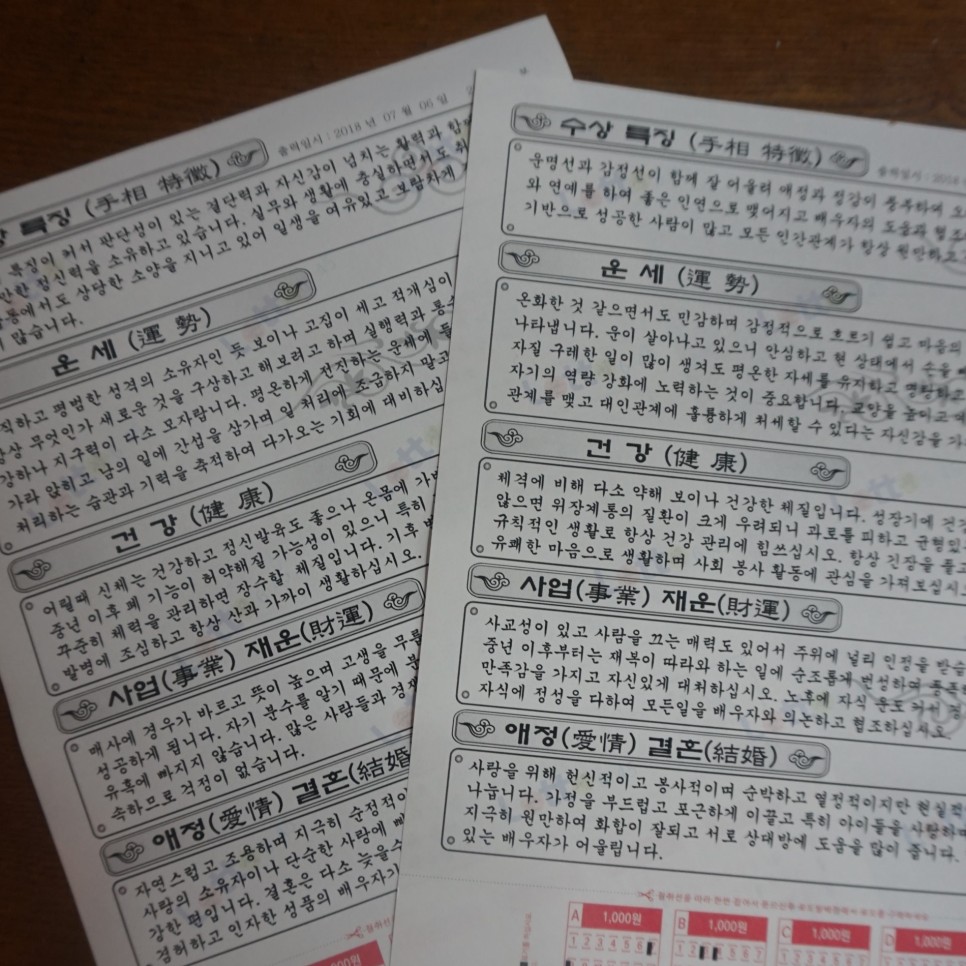 특징 (手相 特徵)
출력일시 : 2018 년 07 월 06 일
특징이 커서 판단성이 있는 결단력과 자신감이 넘치는 활력과
정신력을 소유하고 있습니다. 실무와 생활에 충실하면서도
상당한 소양을 지니고 있어 일생을 여유있고 보람차게
많습니다.
운 세 (運 勢)
평범한 성격의 소유자인 듯 보이나 고집이 세고 적개심이
무엇인가 새로운 것을 구상하고 해보려고 하며 실행력과
강하나 지구력이 다소 모자랍니다. 평온하게 전진하는 운세에
가라 앉히고 남의 일에 간섭을 삼가며 일 처리에 조급하지 말고
처리하는 습관과 기력을 축적하여 다가오는 기회에 대비하십
건 강 (健 康)
어릴때 신체는 건강하고 정신발육도 좋으나 온몸에
중년 이후 폐 기능이 허약해질 가능성이 있으니 특히
꾸준히 체력을 관리하면 장수할 체질입니다. 기후
발병에 조심하고 항상 산과 가까이 생활하십시오.
사업(事業) 재운(財運)
매사에 경우가 바르고 뜻이 높으며 고생을
성공하게 됩니다. 자기 분수를 알기 때문에
유혹에 빠지지 않습니다. 많은 사람들과
속하므로 걱정이 없습니다.
애정(愛情) 결혼(結婚
자연스럽고 조용하며 지극히 순정적이
사랑의 소유자이나 단순한 사랑에
강한 편입니다. 결혼은 다소 늦을수
겸허하고 인자한 성품의 배우자가
수상 특징 (手相 特徵)
출력일시 : 2018
운명선과 감정선이 함께 잘 어울려 애정과 정감이 풍부하며
와 연예를 하여 좋은 인연으로 맺어지고 배우자의 도움과 협조
기반으로 성공한 사람이 많고 모든 인간관계가 항상 원만하고
운 세 (運 勢)
온화한 것 같으면서도 민감하며 감정적으로 흐르기 쉽고 마음의
나타냅니다. 운이 살아나고 있으니 안심하고 현 상태에서 손을
자질 구레한 일이 많이 생겨도 평온한 자세를 유지하고 명랑하고
자기의 역량 강화에 노력하는 것이 중요합니다. 교양을 높이고
관계를 맺고 대인관계에 훌륭하게 처세할 수 있다는 자신감을
건 강 (健 康)
체격에 비해 다소 약해 보이나 건강한 체질입니다. 성장기에
않으면 위장계통의 질환이 크게 우려되니 과로를 피하고 균형있
규칙적인 생활로 항상 건강 관리에 힘쓰십시오. 항상 긴장을 풀고
유쾌한 마음으로 생활하며 사회 봉사 활동에 관심을 가져보십시오
사업(事業) 재운(財運)
사교성이 있고 사람을 끄는 매력도 있어서 주위에 널리 인정을
중년 이후부터는 재복이 따라와 하는 일에 순조롭게 번성하며
만족감을 가지고 자신있게 대처하십시오. 노후에 자식 운도 커서
자식에 정성을 다하여 모든일을 배우자와 의논하고 협조하십시오.
애정(愛情) 결혼(結婚)
사랑을 위해 헌신적이고 봉사적이며 순박하고 열정적이지만 현실적
나눕니다. 가정을 부드럽고 포근하게 이끌고 특히 아이들을 사랑하며
지극히 원만하여 화합이 잘되고 서로 상대방에 도움을 많이 줍니다.
있는 배우자가 어울립니다.
A 1,000원 B 1,000원 C 1,000원 D 1,000원